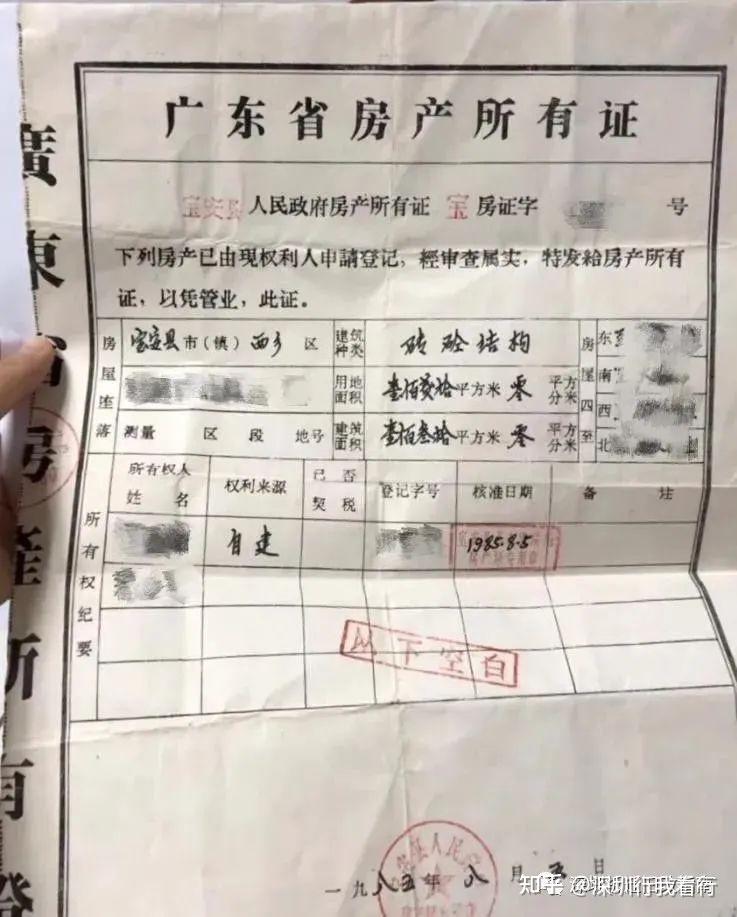 广东省房产所有证
宝安县人民政府房产所有证 宝 房证字 号
下列房产已由现权利人申請登记，經审查属实，特发給房产所有
证，以凭管业，此证。
房屋座落 宝安县市（镇）西乡 区 建筑种类 砖砼结构 房屋四至 东
用地面积 壹佰贰拾平方米 零 平方分米 南
西
测量 区 段 地号 建筑面积 壹佰叁拾平方米 零 平方分米 北
所有权纪要 所有权人姓名 权利来源 已否契税 登记字号 核准日期 备 注
自建 1985.8.5
以下空白
一九八五年八月五日
廣東省房產所有證
知乎